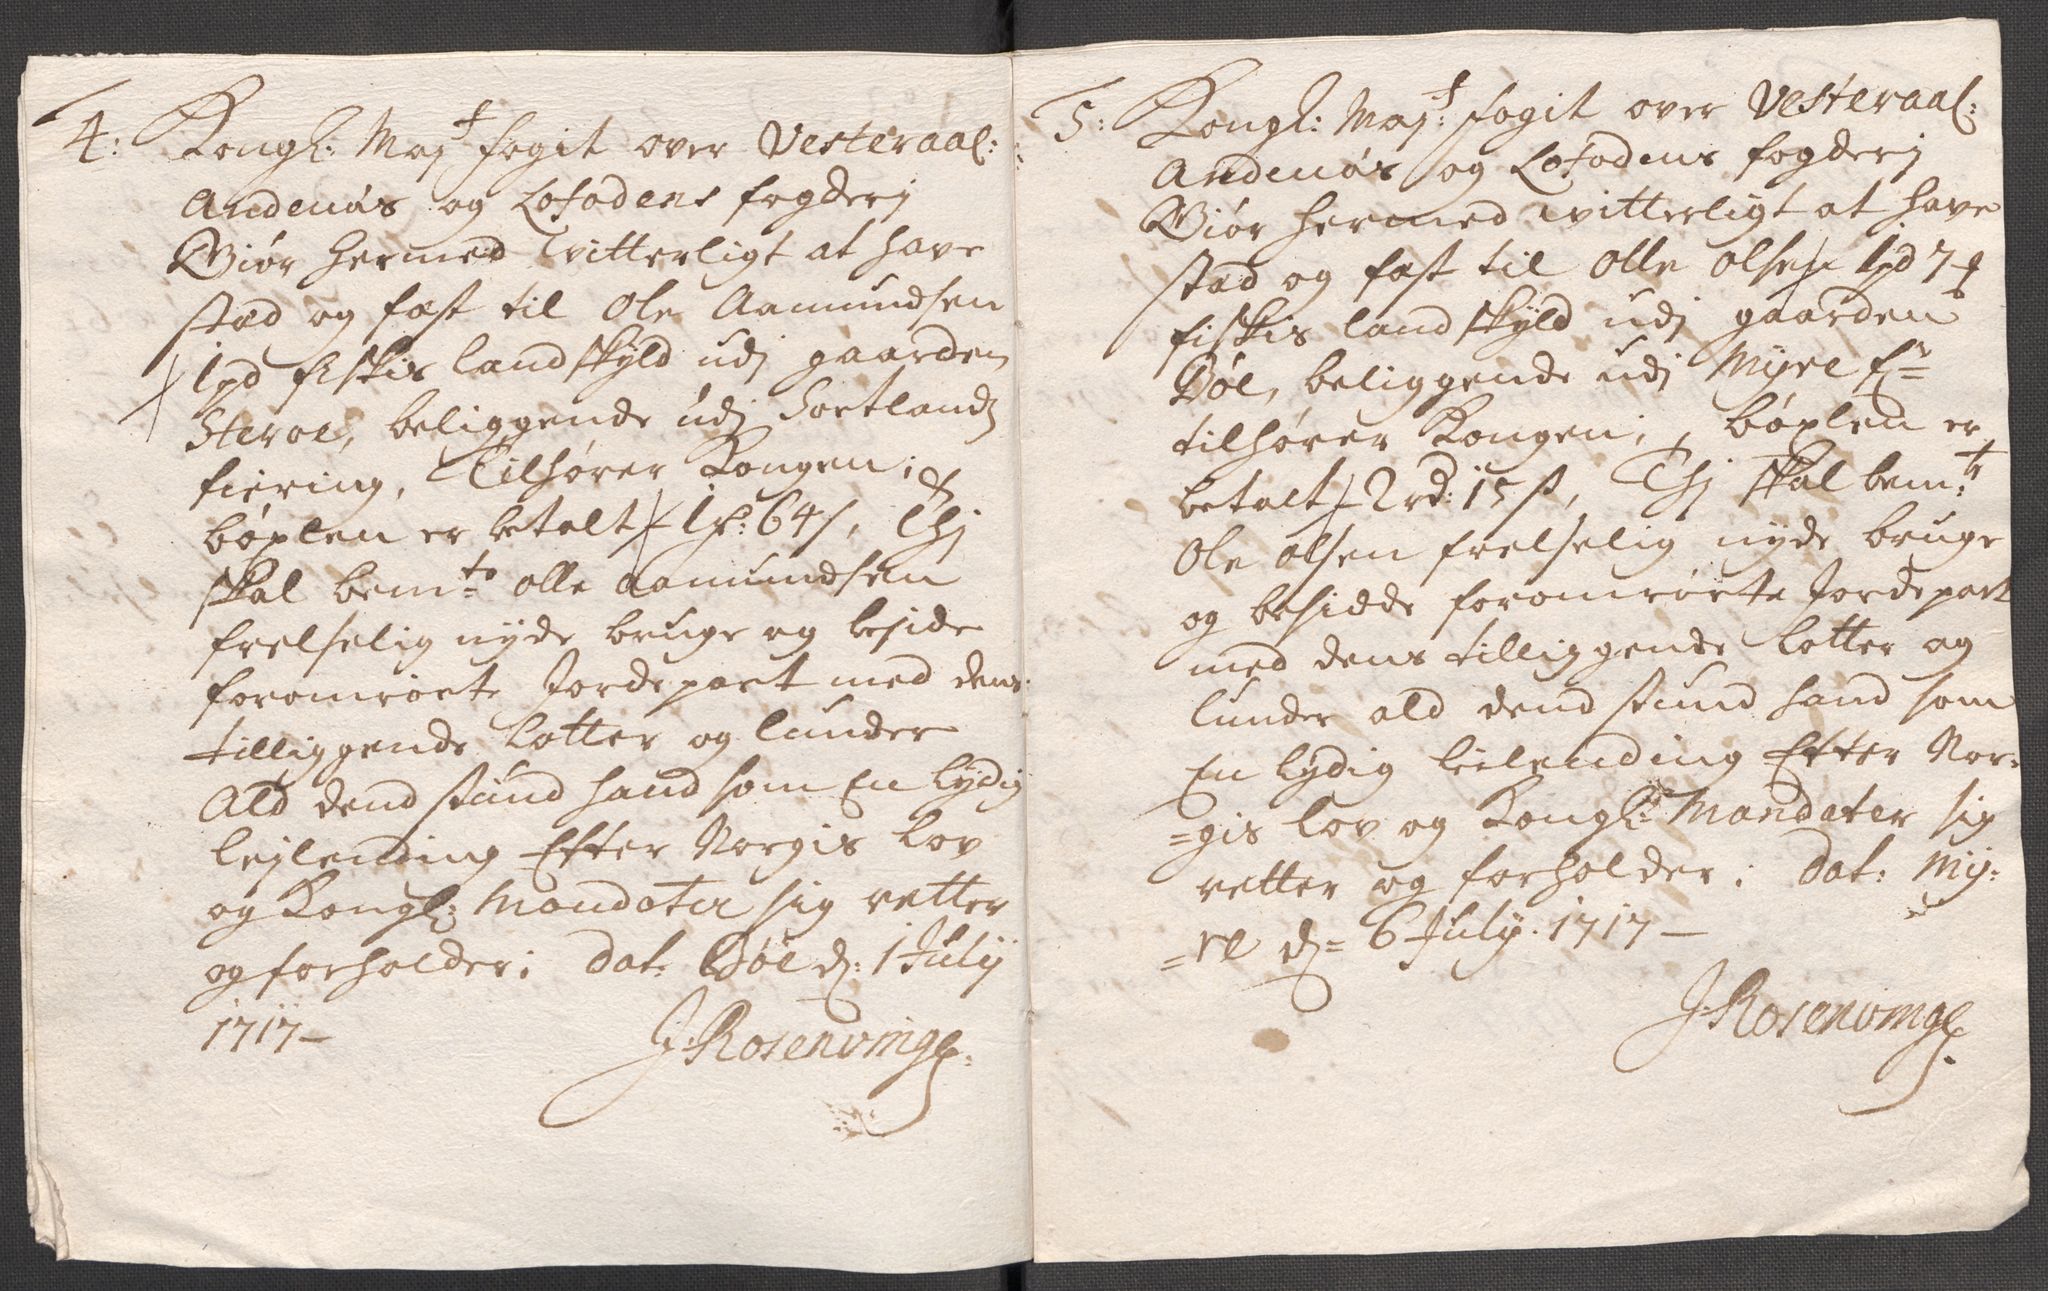 4: Kongl: Maj:t fogit over Vesteraal:
Andenøs og Lofodens fogderj
Giør hermed vitterligt at have
stæd og fæst til Ole Aamundsen
1 pd fiskis landskyld udj gaarden
Steroe, beliggende udj Sortlands
fiering, Tilhører Kongen;
bøxlen er betalt / 1 r: 64 s, Thj
skal bem:te olle Aamundsen
frelselig nyde bruge og beside
foromrørte Jordepart med dens
tilliggende Lotter og lunder
Ald dend stund hand som En lydig
lejlending Efter Norgis Lov
og Kongl: Mandater sig retter
og forholder; Dat: Bøe d: 1 July
1717 –
J: Rosenvinge:
5: Kongl: Maj:t fogit over Vesteraal:
Andenøs og Lofodens fogderj
Giør hermed vitterligt at have
stæd og fæst til Olle Olsen 1 pd
fiskis landskyld udj gaarden
Bøe, beliggende udj Myre
tilhører Kongen; bøxlen er
betalt / 2 rd: 15 s, Thj skal bem:te
Ole Olsen frelselig nyde bruge
og besidde foromrørte Jordepart
med dens tilliggende Lotter og
lunder ald dend stund hand som
En lydig leilending Efter Nor=
=gis Lov og Kongl: Mandater sig
retter og forholder; Dat: My=
=re d= 6 July: 1717 –
J: Rosenvinge